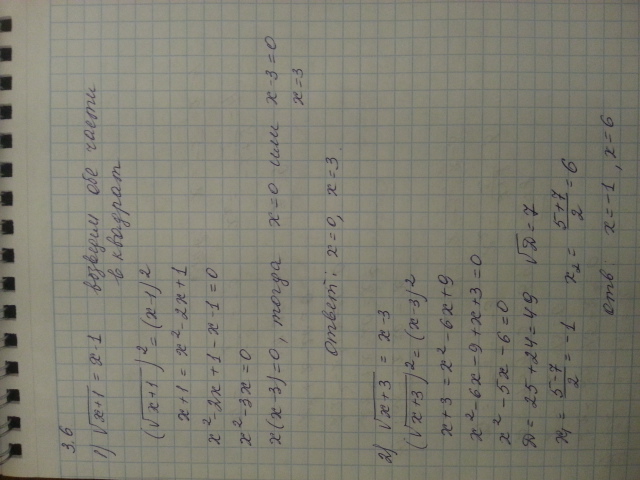 3.6
1) √x+1 = x-1 возведим обе части
в квадрат
(√x+1)² = (x-1)²
x+1 = x²-2x+1
x²-2x+1-x-1=0
x²-3x=0
x(x-3)=0, тогда x=0 или x-3=0
x=3
Ответ: x=0, x=3.
2) √x+3 = x-3
(√x+3)² = (x-3)²
x+3 = x²-6x+9
x²-6x-9+x+3=0
x²-5x-6=0
D=25+24=49 √D=7
x₁ = 5-7/2 = -1 x₂ = 5+7/2 = 6
отв: x=-1, x=6